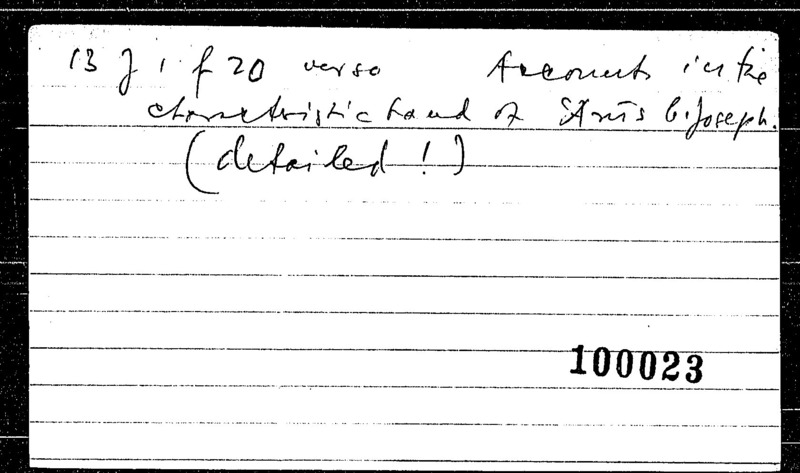 13 J 1 f 20 verso Accounts in the
characteristic hand of 'Arūs b. Joseph.
(detailed!)
100023